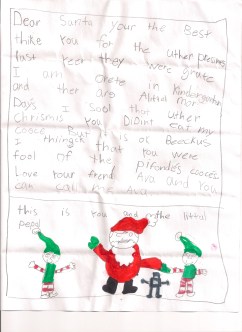 Dear Santa your the Best
thike You for the uther presins
last yeer they were grate
I am in Kindergarten
and ther are Alittol more
Days I that uther
chrismis You DiDint eat my
cooce But is of Because
I thingk that you were
fool of the coocei's
Love your frend Ava and You
can call me Ava
this is you and the littal
pepol